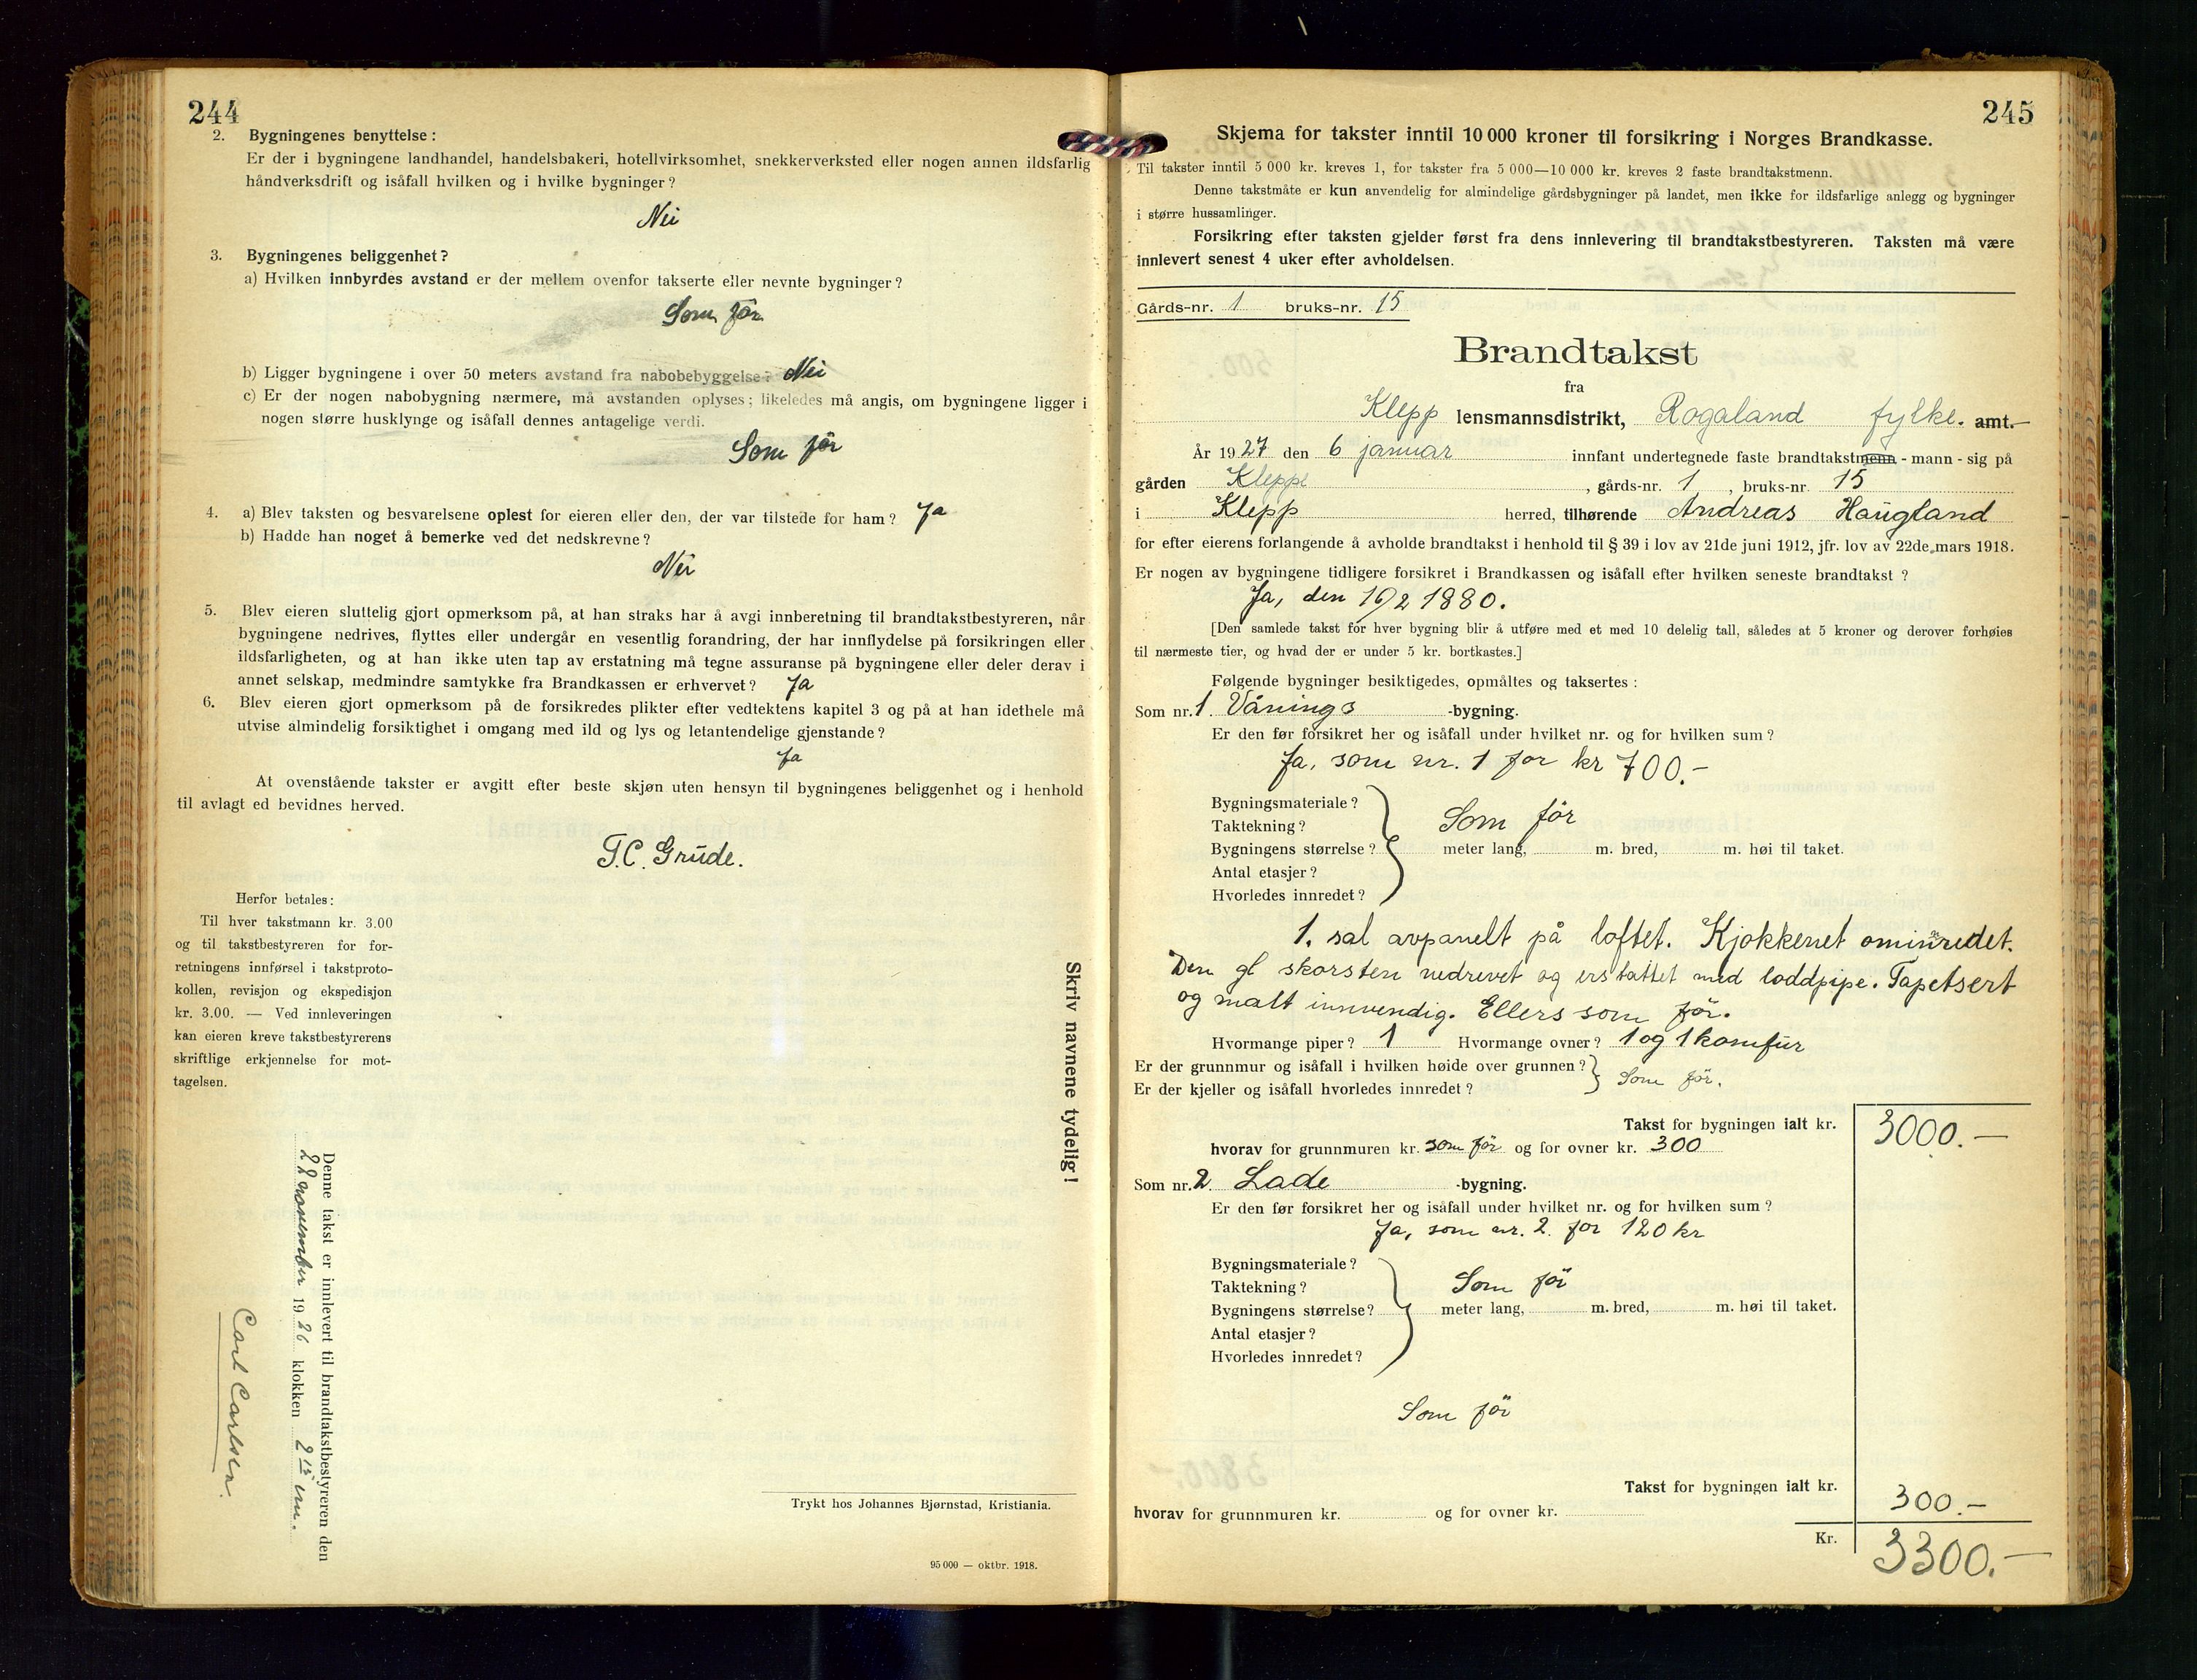 244
2. Bygningenes benyttelse:
Er der i bygningene landhandel, handelsbakeri, hotellvirksomhet, snekkerverksted eller nogen annen ildsfarlig
håndverksdrift og isåfall hvilken og i hvilke bygninger?
Nei
3. Bygningenes beliggenhet?
a) Hvilken innbyrdes avstand er der mellem ovenfor takserte eller nevnte bygninger?
Som før
b) Ligger bygningene i over 50 meters avstand fra nabobebyggelse? Nei
c) Er der nogen nabobygning nærmere, må avstanden oplyses; likeledes må angis, om bygningene ligger i
nogen større husklynge og isåfall dennes antagelige verdi.
Som før
4. a) Blev taksten og besvarelsene oplest for eieren eller den, der var tilstede for ham? Ja
b) Hadde han noget å bemerke ved det nedskrevne?
Nei
5. Blev eieren sluttelig gjort opmerksom på, at han straks har å avgi innberetning til brandtakstbestyreren, når
bygningene nedrives, flyttes eller undergår en vesentlig forandring, der har innflydelse på forsikringen eller
ildsfarligheten, og at han ikke uten tap av erstatning må tegne assuranse på bygningene eller deler derav i
annet selskap, medmindre samtykke fra Brandkassen er erhvervet? Ja
6. Blev eieren gjort opmerksom på de forsikredes plikter efter vedtektens kapitel 3 og på at han idethele må
utvise almindelig forsiktighet i omgang med ild og lys og letantendelige gjenstande?
Ja
At ovenstående takster er avgitt efter beste skjøn uten hensyn til bygningenes beliggenhet og i henhold
til avlagt ed bevidnes herved.
T.C. Grude.
Herfor betales:
Til hver takstmann kr. 3.00
og til takstbestyreren for for-
retningens innførsel i takstproto-
kollen, revisjon og ekspedisjon
kr. 3.00. — Ved innleveringen
kan eieren kreve takstbestyrerens
skriftlige erkjennelse for mot-
tagelsen.
Skriv navnene tydelig!
Denne takst er innlevert til brandtakstbestyreren den
22 november 1926 klokken 2 15 em.
Carl Carlsen.
Trykt hos Johannes Bjørnstad, Kristiania.
95 000 — oktbr. 1918.
245
Skjema for takster inntil 10 000 kroner til forsikring i Norges Brandkasse.
Til takster inntil 5 000 kr. kreves 1, for takster fra 5 000—10 000 kr. kreves 2 faste brandtakstmenn.
Denne takstmåte er kun anvendelig for almindelige gårdsbygninger på landet, men ikke for ildsfarlige anlegg og bygninger
i større hussamlinger.
Forsikring efter taksten gjelder først fra dens innlevering til brandtakstbestyreren. Taksten må være
innlevert senest 4 uker efter avholdelsen.
Gårds-nr. 1 bruks-nr. 15
Brandtakst
fra
Klepp lensmannsdistrikt, Rogaland fylke. amt.
År 1927 den 6 januar innfant undertegnede faste brandtakstmenn - mann - sig på
gården Kleppe, gårds-nr. 1, bruks-nr. 15
i Klepp herred, tilhørende Andreas Haugland
for efter eierens forlangende å avholde brandtakst i henhold til § 39 i lov av 21de juni 1912, jfr. lov av 22de mars 1918.
Er nogen av bygningene tidligere forsikret i Brandkassen og isåfall efter hvilken seneste brandtakst?
Ja, den 16/2 1880.
[Den samlede takst for hver bygning blir å utføre med et med 10 delelig tall, således at 5 kroner og derover forhøies
til nærmeste tier, og hvad der er under 5 kr. bortkastes.]
Følgende bygninger besiktigedes, opmåltes og taksertes:
Som nr. 1. Vånings -bygning.
Er den før forsikret her og isåfall under hvilket nr. og for hvilken sum?
Ja, som nr. 1 for kr 700.-
Bygningsmateriale?
Taktekning? Som før
Bygningens størrelse? meter lang, m. bred, m. høi til taket.
Antal etasjer?
Hvorledes innredet?
1. sal avpanelt på loftet. Kjøkkenet ominnredet.
Den gl skorsten nedrevet og erstattet med loddpipe. Tapetsert
og malt innvendig. Ellers som før.
Hvormange piper? 1 Hvormange ovner? 1 og 1 komfur
Er der grunnmur og isåfall i hvilken høide over grunnen?
Er der kjeller og isåfall hvorledes innredet? Som før.
Takst for bygningen ialt kr. 3000.—
hvorav for grunnmuren kr. som før og for ovner kr. 300
Som nr. 2. Lade -bygning.
Er den før forsikret her og isåfall under hvilket nr. og for hvilken sum?
Ja, som nr. 2. for 120 kr
Bygningsmateriale?
Taktekning? Som før
Bygningens størrelse? meter lang, m. bred, m. høi til taket.
Antal etasjer?
Hvorledes innredet?
Som før
Takst for bygningen ialt kr. 300.—
hvorav for grunnmuren kr. og for ovner kr.
Kr. 3300.—